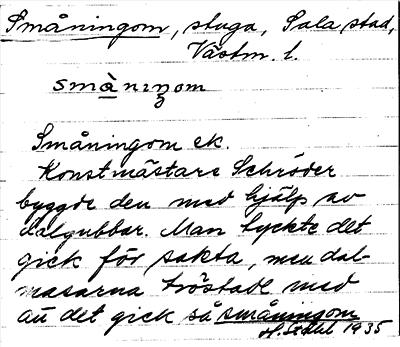 Småningom, stuga, Sala stad,
Västm. l.
småniŋom
Småningom ek.
Konstmästare Schröder
byggde den med hjälp av
dalgubbar. Man tyckte det
gick för sakta, men dal-
masarna tröstade med
att det gick så småningom
1935